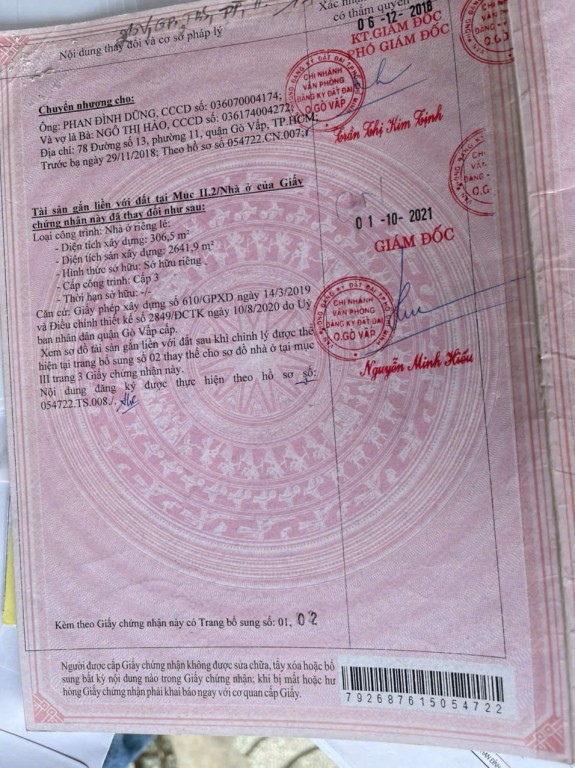 Nội dung thay đổi và cơ sở pháp lý
Xác nhận
có thẩm quyền
06-12-2018
KT.GIÁM ĐỐC
PHÓ GIÁM ĐỐC
CHI NHÁNH
VĂN PHÒNG
ĐĂNG KÝ ĐẤT ĐAI
Q.GÒ VẤP
Trần Thị Kim Tịnh
Chuyển nhượng cho:
Ông: PHAN ĐÌNH DŨNG, CCCD số: 036070004174;
Và vợ là Bà: NGÔ THỊ HÀO, CCCD số: 036174004272;
Địa chỉ: 78 Đường số 13, phường 11, quận Gò Vấp, TP.HCM;
Trước bạ ngày 29/11/2018; Theo hồ sơ số 054722.CN.007;
Tài sản gắn liền với đất tại Mục II.2/Nhà ở của Giấy
chứng nhận này đã thay đổi như sau:
Loại công trình: Nhà ở riêng lẻ:
- Diện tích xây dựng: 306,5 m²
- Diện tích sàn xây dựng: 2641,9 m²
- Hình thức sở hữu: Sở hữu riêng
- Cấp công trình: Cấp 3
- Thời hạn sở hữu: -/-
Căn cứ: Giấy phép xây dựng số 610/GPXD ngày 14/3/2019
và Điều chỉnh thiết kế số 2849/ĐCTK ngày 10/8/2020 do Uỷ
ban nhân dân quận Gò Vấp cấp.
Xem sơ đồ tài sản gắn liền với đất sau khi chỉnh lý được thể
hiện tại trang bổ sung số 02 thay thế cho sơ đồ nhà ở tại mục
III trang 3 Giấy chứng nhận này.
Nội dung đăng ký được thực hiện theo hồ sơ số:
054722.TS.008./.
01-10-2021
GIÁM ĐỐC
CHI NHÁNH
VĂN PHÒNG
ĐĂNG KÝ ĐẤT ĐAI
Q.GÒ VẤP
Nguyễn Minh Hiếu
Kèm theo Giấy chứng nhận này có Trang bổ sung số: 01, 02
Người được cấp Giấy chứng nhận không được sửa chữa, tẩy xóa hoặc bổ
sung bất kỳ nội dung nào trong Giấy chứng nhận; khi bị mất hoặc hư
hỏng Giấy chứng nhận phải khai báo ngay với cơ quan cấp Giấy.
792687615054722